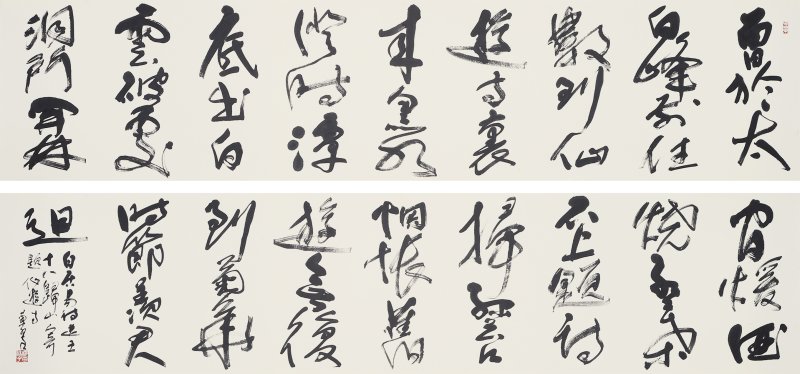 曾於太
白峰前住
數到仙
遊寺裏
來黑水
澄時潭
底出白
雲破處
洞門開林
間煖酒
燒紅葉
石上題詩
掃綠苔
惆悵舊
遊無復
到菊華
時節羨君
迴
白居易詩送王
十八歸山寄
題仙遊寺